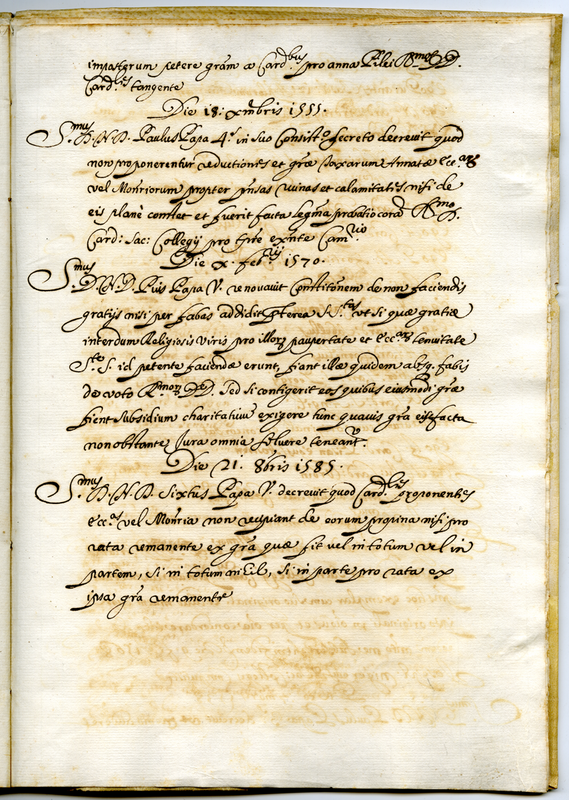 petere grām a Card.bus pro
Card.les tangente
Die 18. xmbris 1555.
S.mus D. N. D. Paulus Papa 4.s in suo Consist.o secreto decrevit quod
non proponerentur reductiones et grāe taxarum Annatae Ecc.arũ
vel Mon̄riorum propter pn̄sas ruinas et calamitates nisi de
eis planè constet et fuerit facta legma probatio corā R.mo D.
Card: Sac: Collegij pro tpre exnte Cam.rio
Die x. feb.rij 1570.
S.mus D. N. D. Pius Papa V. renovavit Constitōnem de non faciendis
gratijs nisi per fabas addidit pterea S. S.tas ut si quae gratiae
interdum Religiosis viris pro illorũ paupertate et Ecc.arũ tenuitate
S.te S. id petente faciendae erunt, fiant illae quidem absq. fabis
de voto R.morũ DD. Sed si contigerit eos quibus eiusmodi grāe
fient subsidium charitativũ exigere tunc quavis grā eis facta
non obstante Jura omnia solvere teneant.r
Die 21. 8bris 1585.
S.mus D. N. D. Sixtus Papa V. decrevit quod Card.les proponentes
Ecc.as vel Mon̄ria non recipiant de eorum propina nisi pro
rata remanente ex grā quae fit vel in totum vel in
partem, si in totum nihil, si in parte pro rata ex
ipsa grā remanente